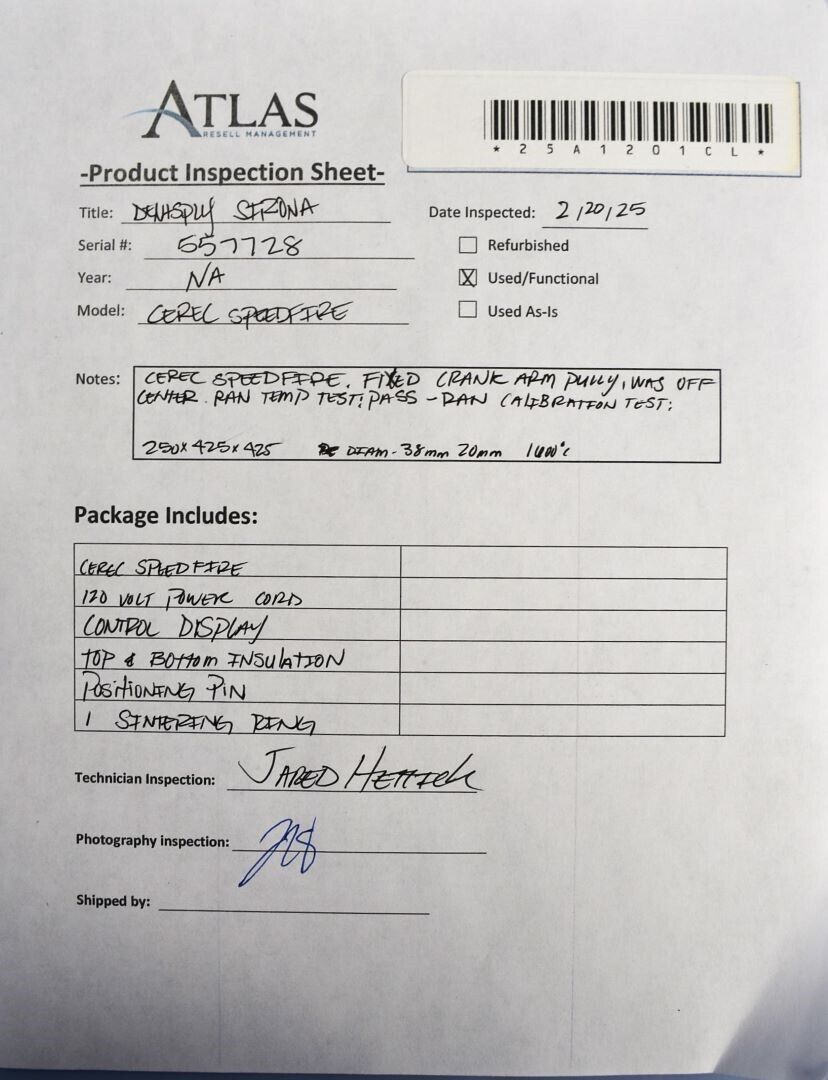 ATLAS
RESELL MANAGEMENT
*25A1201CL*
-Product Inspection Sheet-
Title: DENTSPLY SIRONA
Date Inspected: 2/20/25
Serial #: 557728
Refurbished
Year: NA
X Used/Functional
Model: CEREC SPEEDFIRE
Used As-Is
Notes: CEREC SPEEDFIRE. FIXED CRANK ARM PULLY, WAS OFF
CENTER. RAN TEMP TEST: PASS - RAN CALIBRATION TEST:
250x425x425 DIAM - 38mm 20mm 1600°C
Package Includes:
CEREC SPEEDFIRE
120 VOLT POWER CORD
CONTROL DISPLAY
TOP & BOTTOM INSULATION
POSITIONING PIN
1 SINTERING RING
Technician Inspection: JARED
Photography inspection:
Shipped by: